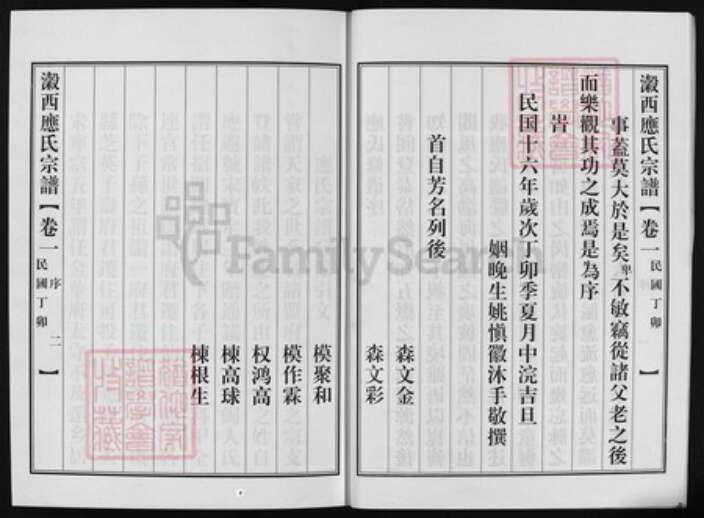 瀫西應氏宗譜【卷一 民國丁卯】
事蓋莫大於是矣卑不敏竊從諸父老之後
而樂觀其功之成焉是為序
旹
民国十六年歲次丁卯季夏月中浣吉旦
姻晚生姚慎徽沐手敬撰
首自芳名列後
森文金
森文彩
模聚和
模作霖
权鸿高
棟高球
棟根生
瀫西應氏宗譜【卷一 民國丁卯 序 二】
FamilySearch